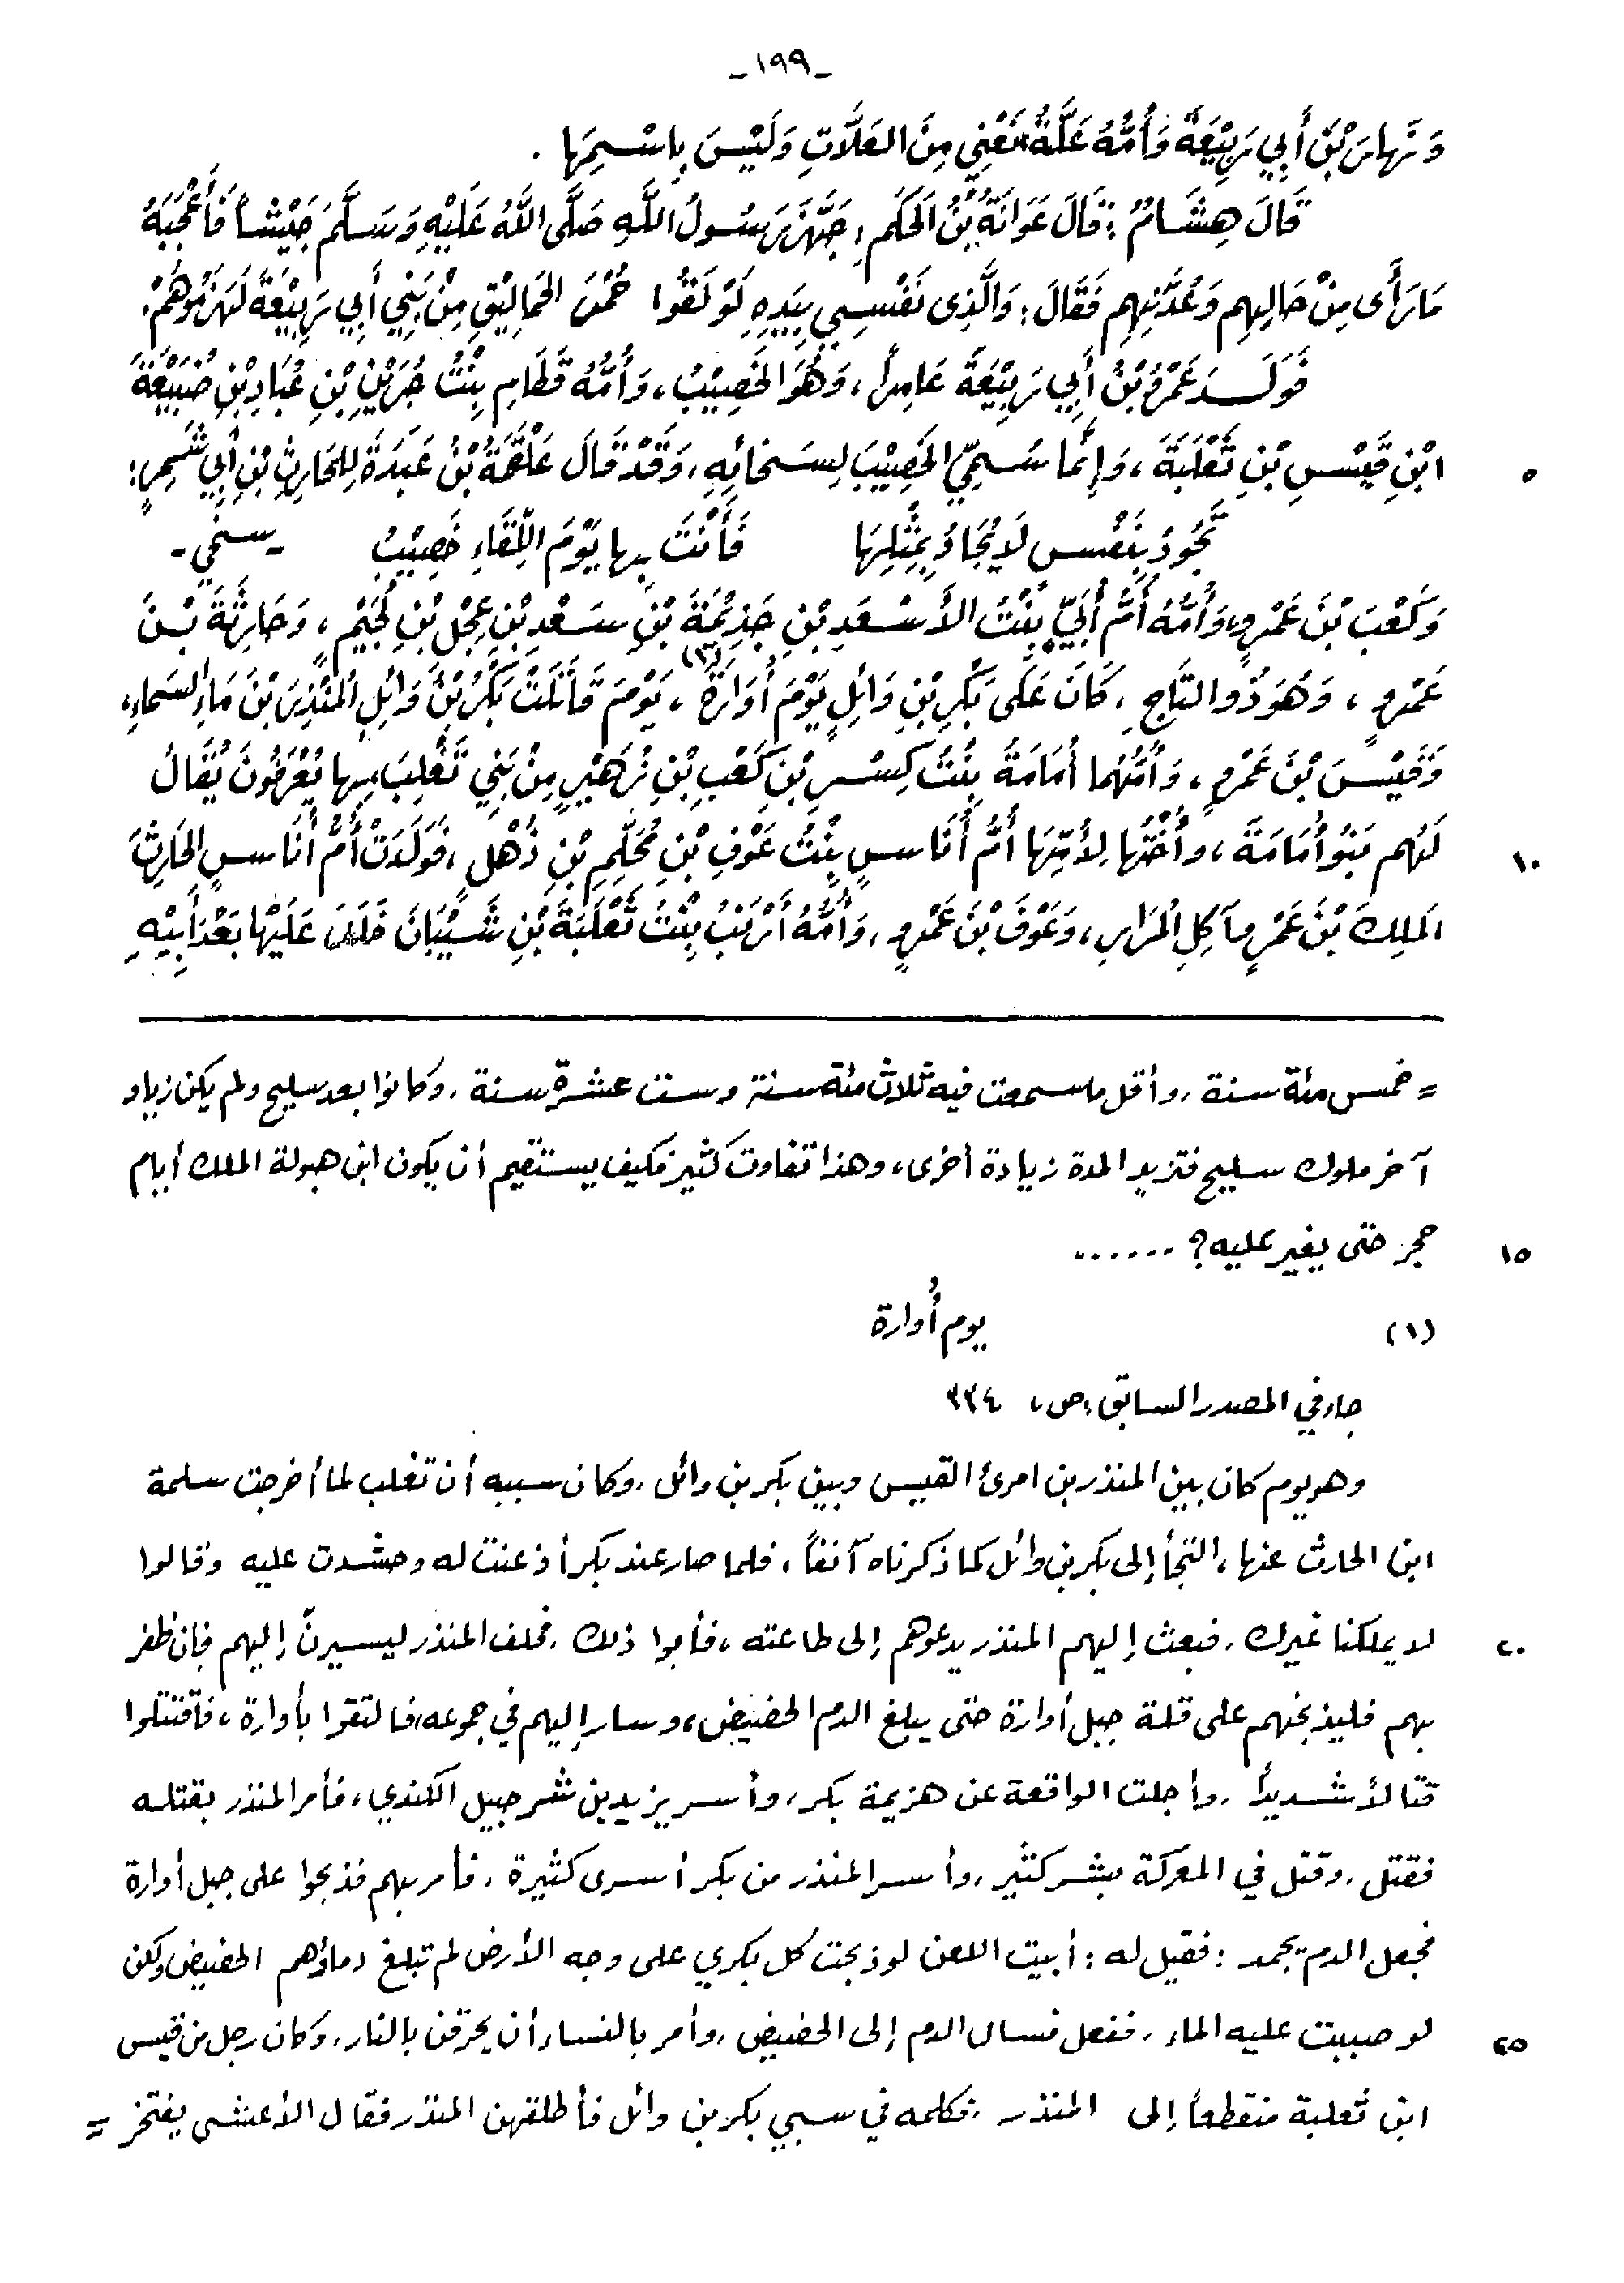 -١٩٩-
وَنَهَارَ بْنَ أَبِي رَبِيْعَةَ وَأُمُّهُ عَلَّةُ تَعْنِي مِنَ العَلَّاتِ وَلَيْسَ بِاسْمِهَا .
قَالَ هِشَامٌ : قَالَ عَوَانَةُ بْنُ الحَكَمِ : جَهَّزَ رَسُولُ اللَّهِ صَلَّى اللَّهُ عَلَيْهِ وَسَلَّمَ جَيْشاً فَأَعْجَبَهُ
مَا رَأَى مِنْ حَالِهِم وَعُدَّتِهِم فَقَالَ : وَالَّذِى نَفْسِي بِيَدِهِ لَوْ لَقُوا حُمْرَ الحَمَالِيْقِ مِنْ بَنِي أَبِي رَبِيْعَةَ لَهَزَمُوهُمْ .
فَوَلَدَ عَمْرُو بْنُ أَبِي رَبِيْعَةَ عَامِراً ، وَهُوَ الخَصِيْبُ ، وَأُمُّهُ قَطَامِ بِنْتُ جُرَيْنِ بْنِ عُبَادِ بْنِ ضُبَيْعَةَ
ابْنِ قَيْسِ بْنِ ثَعْلَبَةَ ، وَإِنَّمَا سُمِّيَ الخَصِيْبَ لِسَخَائِهِ ، وَقَدْ قَالَ عَلْقَمَةُ بْنُ عَبَدَةَ لِلحَارِثِ بْنِ أَبِي شَمِرٍ : ٥
تَجُودُ بِنَفْسٍ لَا يُجَادُ بِمِثْلِهَا فَأَنْتَ بِهَا يَوْمَ اللِّقَاءِ خَصِيْبُ - سخي -
وَكَعْبَ بْنَ عَمْرٍو ، وَأُمُّهُ أُمُّ أُبَيٍّ بِنْتُ الأَسْعَدِ بْنِ جَذِيْمَةَ بْنِ سَعْدِ بْنِ عِجْلِ بْنِ لُجَيْمٍ ، وَحَارِثَةَ بْنَ
عَمْرٍو ، وَهُوَ ذُو التَّاجِ ، كَانَ عَلَى بَكْرِ بْنِ وَائِلٍ يَوْمَ أُوَارَةَ (١) ، يَوْمَ قَاتَلَتْ بَكْرُ بْنُ وَائِلٍ المُنْذِرَ بْنَ مَاءِ السَمَاءِ ،
وَقَيْسَ بْنَ عَمْرٍو ، وَأُمُّهُمَا أُمَامَةُ بِنْتُ كِسْرِ بْنِ كَعْبِ بْنِ زُهَيْرٍ مِنْ بَنِي تَغْلِبَ ، بِهَا يُعْرَفُونَ يُقَالُ
لَهُم بَنُو أُمَامَةَ ، وأُخْتُهَا لِأُمِّهَا أُمُّ أُنَاسٍ بِنْتُ عَوْفِ بْنِ مُحَلِّمِ بْنِ ذُهْلٍ ، فَوَلَدَتْ أُمُّ أُنَاسٍ الحَارِثَ ١٠
المَلِكَ بْنَ عَمْرٍو آكِلِ المُرَارِ ، وَعَوْفَ بْنَ عَمْرٍو ، وَأُمُّهُ أَرْنَبُ بِنْتُ ثَعْلَبَةَ بْنِ شَيْبَانَ خَلَفَ عَلَيْهَا بَعْدَ أَبِيْهِ
= خمس مئة سنة ، وأقل ما سمعت فيه ثلاث مئة سنة وست عشرة سنة ، وكانوا بعد سليح ولم يكن زياد
آخر ملوك سليح فتزيد المدة زيادة أخرى ، وهذا تفاوت كثير فكيف يستقيم أن يكون ابن هبولة الملك أيام
حجر حتى يغير عليه ؟ ...... ١٥
(١) يوم أُوارة
جاء في المصدر السابق ، ص ، ٣٣٤
وهو يوم كان بين المنذر بن امرئ القيس وبين بكر بن وائل ، وكان سببه أن تغلب لما أخرجت سلمة
ابن الحارث عنها ، التجأ إلى بكر بن وائل كما ذكرناه آنفاً ، فلما صار عند بكر أذعنت له وحشدت عليه وقالوا
لا يملكنا غيرك ، فبعث إليهم المنذر يدعوهم إلى طاعته ، فأبوا ذلك ، فحلف المنذر ليسيرنّ إليهم فإن ظفر ٢٠
بهم فليذبحنهم على قلة جبل أوارة حتى يبلغ الدم الحضيض ، وسار إليهم في جموعه ، فالتقوا بأوارة ، فاقتتلوا
قتالاً شديداً ، وأجلت الواقعة عن هزيمة بكر ، وأسر يزيد بن شرحبيل الكندي ، فأمر المنذر بقتله
فقتل ، وقتل في المعركة بشر كثير ، وأسر المنذر من بكر أسرى كثيرة ، فأمر بهم فذبحوا على جبل أوارة
فجعل الدم يجمد : فقيل له : أبيت اللعن لو ذبحت كل بكري على وجه الأرض لم تبلغ دماؤهم الحضيض ولكن
لو صببت عليه الماء ، ففعل فسال الدم إلى الحضيض ، وأمر بالنساء أن يحرقن بالنار ، وكان رجل من قيس ٢٥
ابن ثعلبة منقطعاً إلى المنذر ، فكلمه في سبي بكر بن وائل فأطلقهن المنذر فقال الأعشى يفتخر =